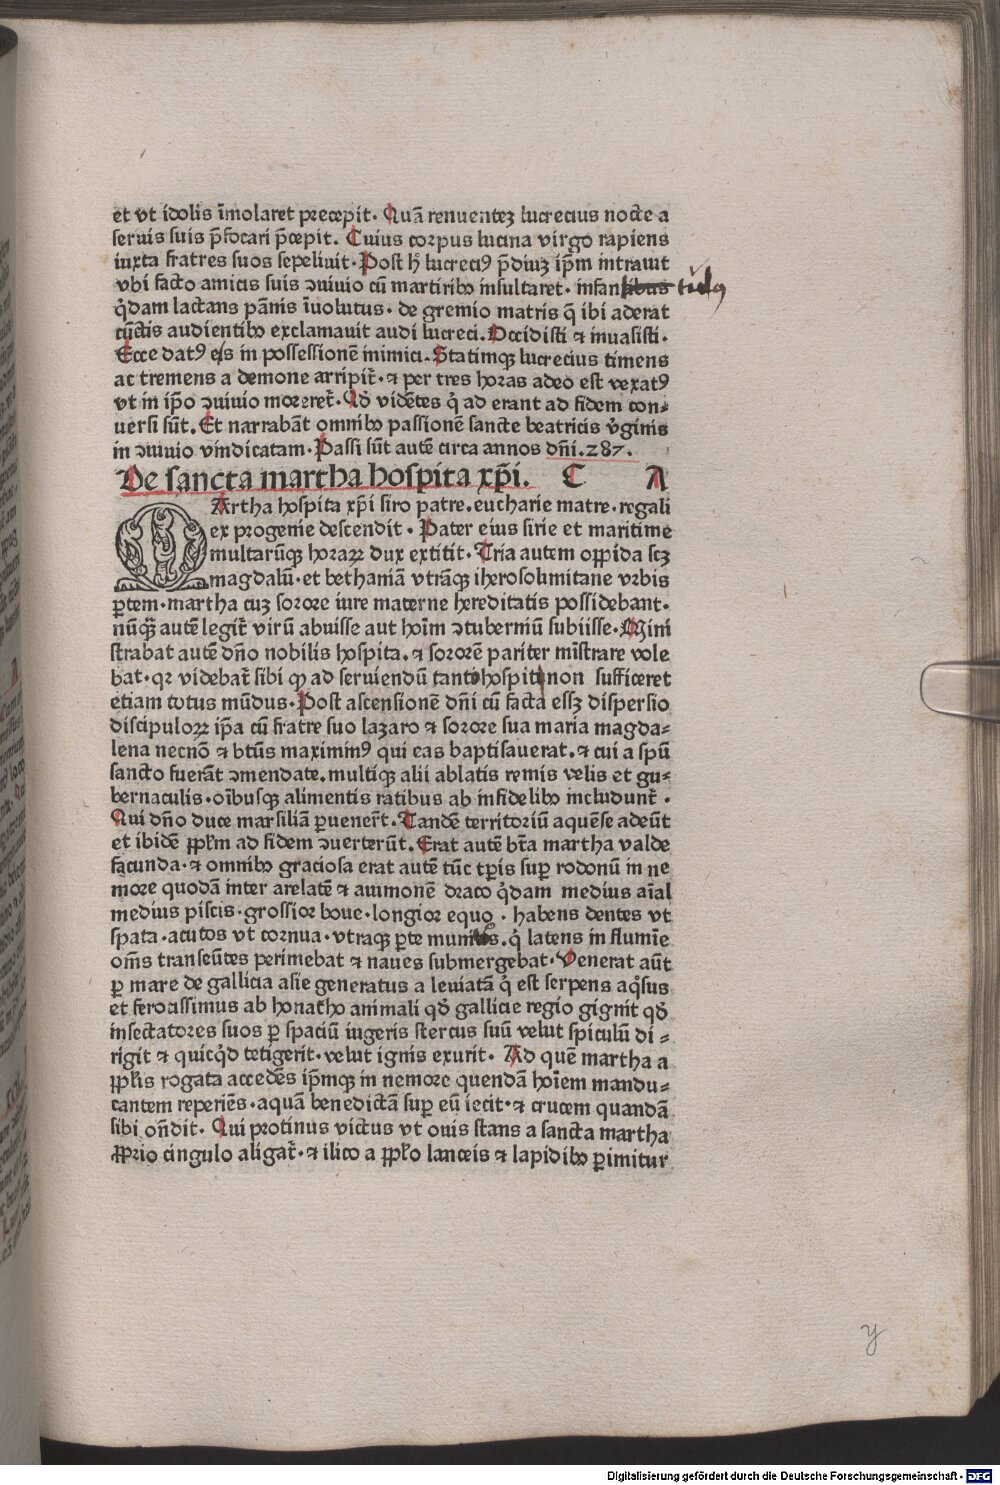 et vt idolis īmolaret precepit. Quā renuenteꝫ lucrecius nocte a
seruis suis p̄focari p̄cepit. Cuius corpus lucina virgo rapiens
iuxta fratres suos sepeliuit. Post h̄ lucreciꝰ p̄diuꝫ ip̄m intrauit
vbi facto amicis suis ↄuiuio cū martiribꝰ insultaret. infansibus tulꝰ
q̇dam lactans pānis īuolutus. de gremio matris q̇ ibi aderat
cūctis audientibꝰ exclamauit audi lucreci. Occidisti ⁊ inuasisti.
Ecce datꝰ es in possessionē inimici. Statimqꝫ lucrecius timens
ac tremens a demone arripit̄. ⁊ per tres horas adeo est vexatꝰ
vt in ip̄o ↄuiuio moreret̄. Qd̄ vidētes q̇ ad erant ad fidem con⸗
uersi sūt. Et narrabāt omnibꝰ passionē sancte beatricis v̄ginis
in ↄuiuio vindicatam. Passi sūt autē circa annos dn̄i. 287.
De sancta martha hospita xp̄i. C A
MArtha hospita xp̄i siro patre. eucharie matre. regali
ex progenie descendit. Pater eius sirie et maritime
multarūqꝫ horaꝝ dux extitit. Tria autem oppida scꝫ
magdalū. et bethaniā vtrāqꝫ iherosolimitane vrbis
ꝑtem. martha cuꝫ sorore iure materne hereditatis possidebant.
nūqꝫ̄ autē legit̄ virū abuisse aut hoīm ↄtuberniū subiisse. Mini
strabat autē dn̄o nobilis hospita. ⁊ sororē pariter mīstrare vole
bat. qꝛ videbat̄ sibi ꝙ ad seruiendū tanto hospiti non sufficeret
etiam totus mūdus. Post ascensionē dn̄i cū facta essꝫ dispersio
discipuloꝝ ip̄a cū fratre suo lazaro ⁊ sorore sua maria magda⸗
lena necnō ⁊ btūs maximinꝰ qui eas baptisauerat. ⁊ cui a spū
sancto fuerāt ↄmendate. multiqꝫ alii ablatis remis velis et gu⸗
bernaculis. oībusqꝫ alimentis ratibus ab infidelibꝰ includunt̄.
Qui dn̄o duce marsiliā ꝑuenert̄. Tandē territoriū aquēse adeūt
et ibidē pp̄lm ad fidem ↄuerterūt. Erat autē bt̄a martha valde
facunda. ⁊ omnibꝰ graciosa erat autē tūc tp̄is suꝑ rodonū in ne
more quodā inter arelatē ⁊ auinionē draco q̇dam medius aīal
medius piscis. grossior boue. longior equo. habens dentes vt
spata. acutos vt cornua. vtraqꝫ ꝑte munitus. q̇ latens in flumīe
om̄s transeūtes perimebat ⁊ naues submergebat. Venerat aūt
ꝑ mare de gallicia asie generatus a leuiatā q̇ est serpens aq̇sus
et ferocissimus ab honacho animali qd̄ gallicie regio gignit qd̄
insectatores suos ꝑ spaciū iugeris stercus suū velut spiculū di⸗
rigit ⁊ quicq̇d tetigerit. velut ignis exurit. Ad quē martha a
pp̄lis rogata accedēs ip̄mqꝫ in nemore quendā hoīem mandu⸗
cantem reperiēs. aquā benedictā suꝑ eū iecit. ⁊ crucem quandā
sibi on̄dit. Qui protinus victus vt ouis stans a sancta martha
ꝓprio cingulo aligat̄. ⁊ ilico a pp̄lo lanceis ⁊ lapidibꝰ ꝑimitur
y
Digitalisierung gefördert durch die Deutsche Forschungsgemeinschaft - DFG